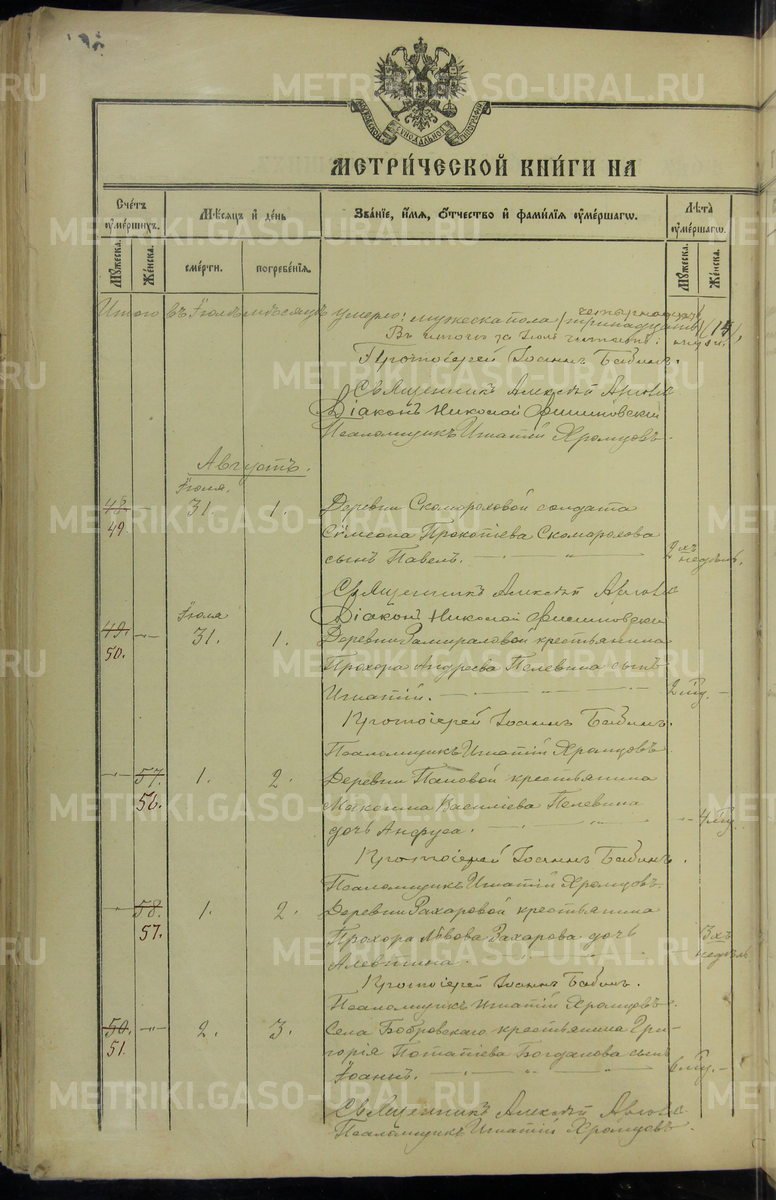 METRIKI.GASO-URAL.RU
МЕТРИ́ЧЕСКОЙ КНИ́ГИ НА
Сче́тъ ᲂумершихъ.
Мѣ́сяцъ и де́нь
Зва́нїе, и́мя, ѻ́тчество и фами́лїя ᲂуме́ршагѡ.
Лѣ́та ᲂуме́ршагѡ.
Мꙋ́жеска.
Же́нска.
сме́рти.
погребе́нїя.
Мꙋ́жеска.
Же́нска.
Итого въ Іюлѣ мѣсяцѣ умерло: мужеска пола
Протоіерей Іоаннъ Бабинъ.
Священникъ Алексѣй
Діаконъ Николай
Псаломщикъ Игнатій Хромцовъ.
Августъ.
Іюля.
48 — 31. 1. Деревни Скомороховой солдата
49 Сѵмеона Прокопіева Скоморохова
сынъ Павелъ. 2хъ недѣль.
Священникъ Алексѣй
Діаконъ Николай
Іюля
49. — 31. 1. Деревни крестьянина
50. Прохора Андреева Пелевина сынъ
Игнатій. 2 —
Протоіерей Іоаннъ Бабинъ.
Псаломщикъ Игнатій Хромцовъ
— 57. 1. 2. Деревни Пановой крестьянина
56. Максима Василіева Пелевина
дочь
Протоіерей Іоаннъ Бабинъ.
Псаломщикъ Игнатій Хромцовъ.
— 58. 1. 2. Деревни Захаровой крестьянина
57. Прохора Львова Захарова дочь
Алевтина. 3хъ недѣль
Протоіерей Іоаннъ Бабинъ.
Псаломщикъ Игнатій Хромцовъ.
50. — 2. 3. Села Бобровскаго крестьянина Гри-
51. горія Потапіева Богданова сынъ
Іоаннъ. 6 —
Священникъ Алексѣй
Псаломщикъ Игнатій Хромцовъ.